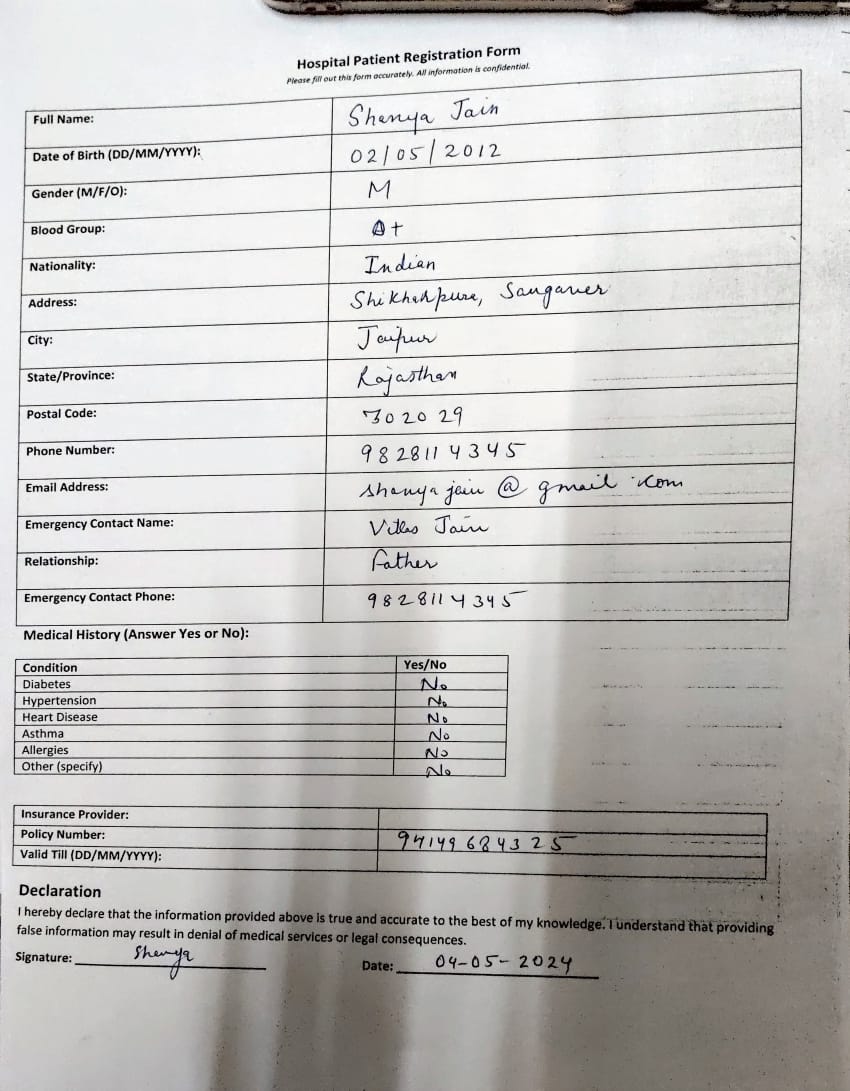 Hospital Patient Registration Form
Please fill out this form accurately. All information is confidential.
Full Name: Shenya Jain
Date of Birth (DD/MM/YYYY): 02/05/2012
Gender (M/F/O): M
Blood Group: A+
Nationality: Indian
Address: Sanganer
City: Jaipur
State/Province: Rajasthan
Postal Code: 302029
Phone Number: 9828114345
Email Address: shenyajain@gmail.com
Emergency Contact Name: Jain
Relationship: Father
Emergency Contact Phone: 9828114345
Medical History (Answer Yes or No):
Condition Yes/No
Diabetes No
Hypertension No
Heart Disease No
Asthma No
Allergies No
Other (specify) No
Insurance Provider:
Policy Number: 94149684325
Valid Till (DD/MM/YYYY):
Declaration
I hereby declare that the information provided above is true and accurate to the best of my knowledge. I understand that providing
false information may result in denial of medical services or legal consequences.
Signature: Shenya Date: 04-05-2024